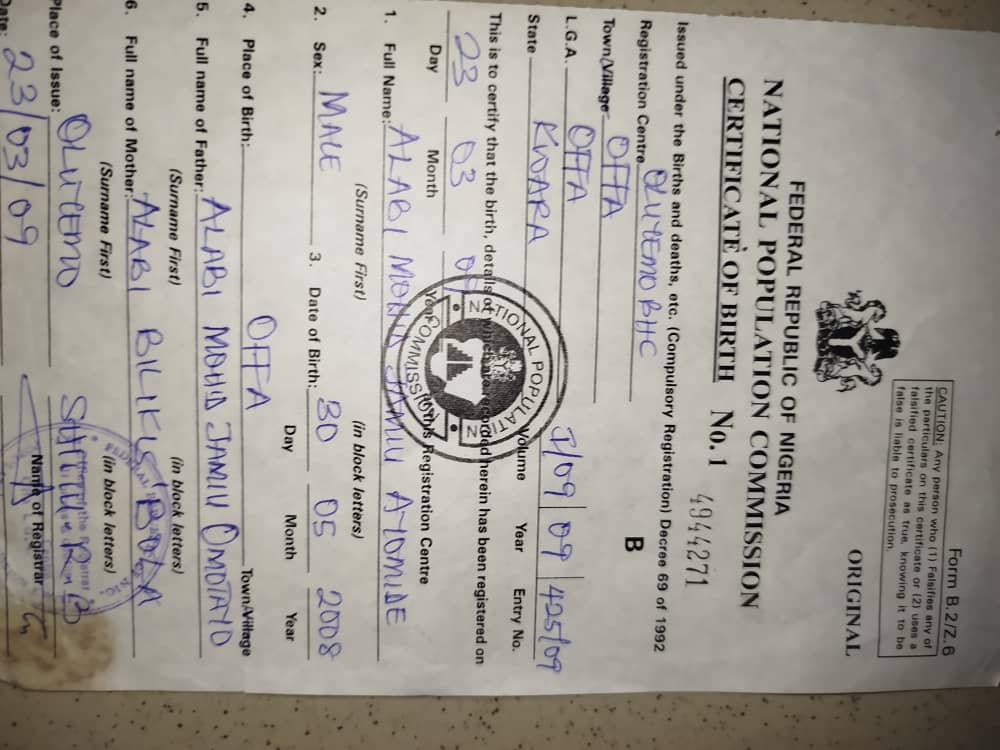 Form B.2/Z.6
CAUTION: Any person who (1) Falsifies any of
the particulars on this certificate or (2) uses a
falsified certificate as true, knowing it to be
false is liable to prosecution.
ORIGINAL
FEDERAL REPUBLIC OF NIGERIA
NATIONAL POPULATION COMMISSION
CERTIFICATE OF BIRTH No. 1 4944271
Issued under the Births and deaths, etc. (Compulsory Registration) Decree 69 of 1992
Registration Centre OLUTEMO BHC B
Town/Village OFFA
L.G.A. OFFA 1/09 09 425/09
State KWARA Volume Year Entry No.
NATIONAL POPULATION COMMISSION
This is to certify that the birth, details of which are recorded herein has been registered on
23 03 09
Day Month Year at this Registration Centre
1. Full Name: ALABI MOHD JAMIU AYOMIDE
(Surname First) (in block letters)
2. Sex: MALE 3. Date of Birth: 30 05 2008
Day Month Year
4. Place of Birth: OFFA Town/Village
5. Full name of Father: ALABI MOHD JAMIU OMOTAYO
(Surname First) (in block letters)
6. Full name of Mother: ALABI BILIKIS BOLA
(Surname First) (in block letters)
Place of Issue: OLUTEMO
Name of Registrar
Date: 23/03/09